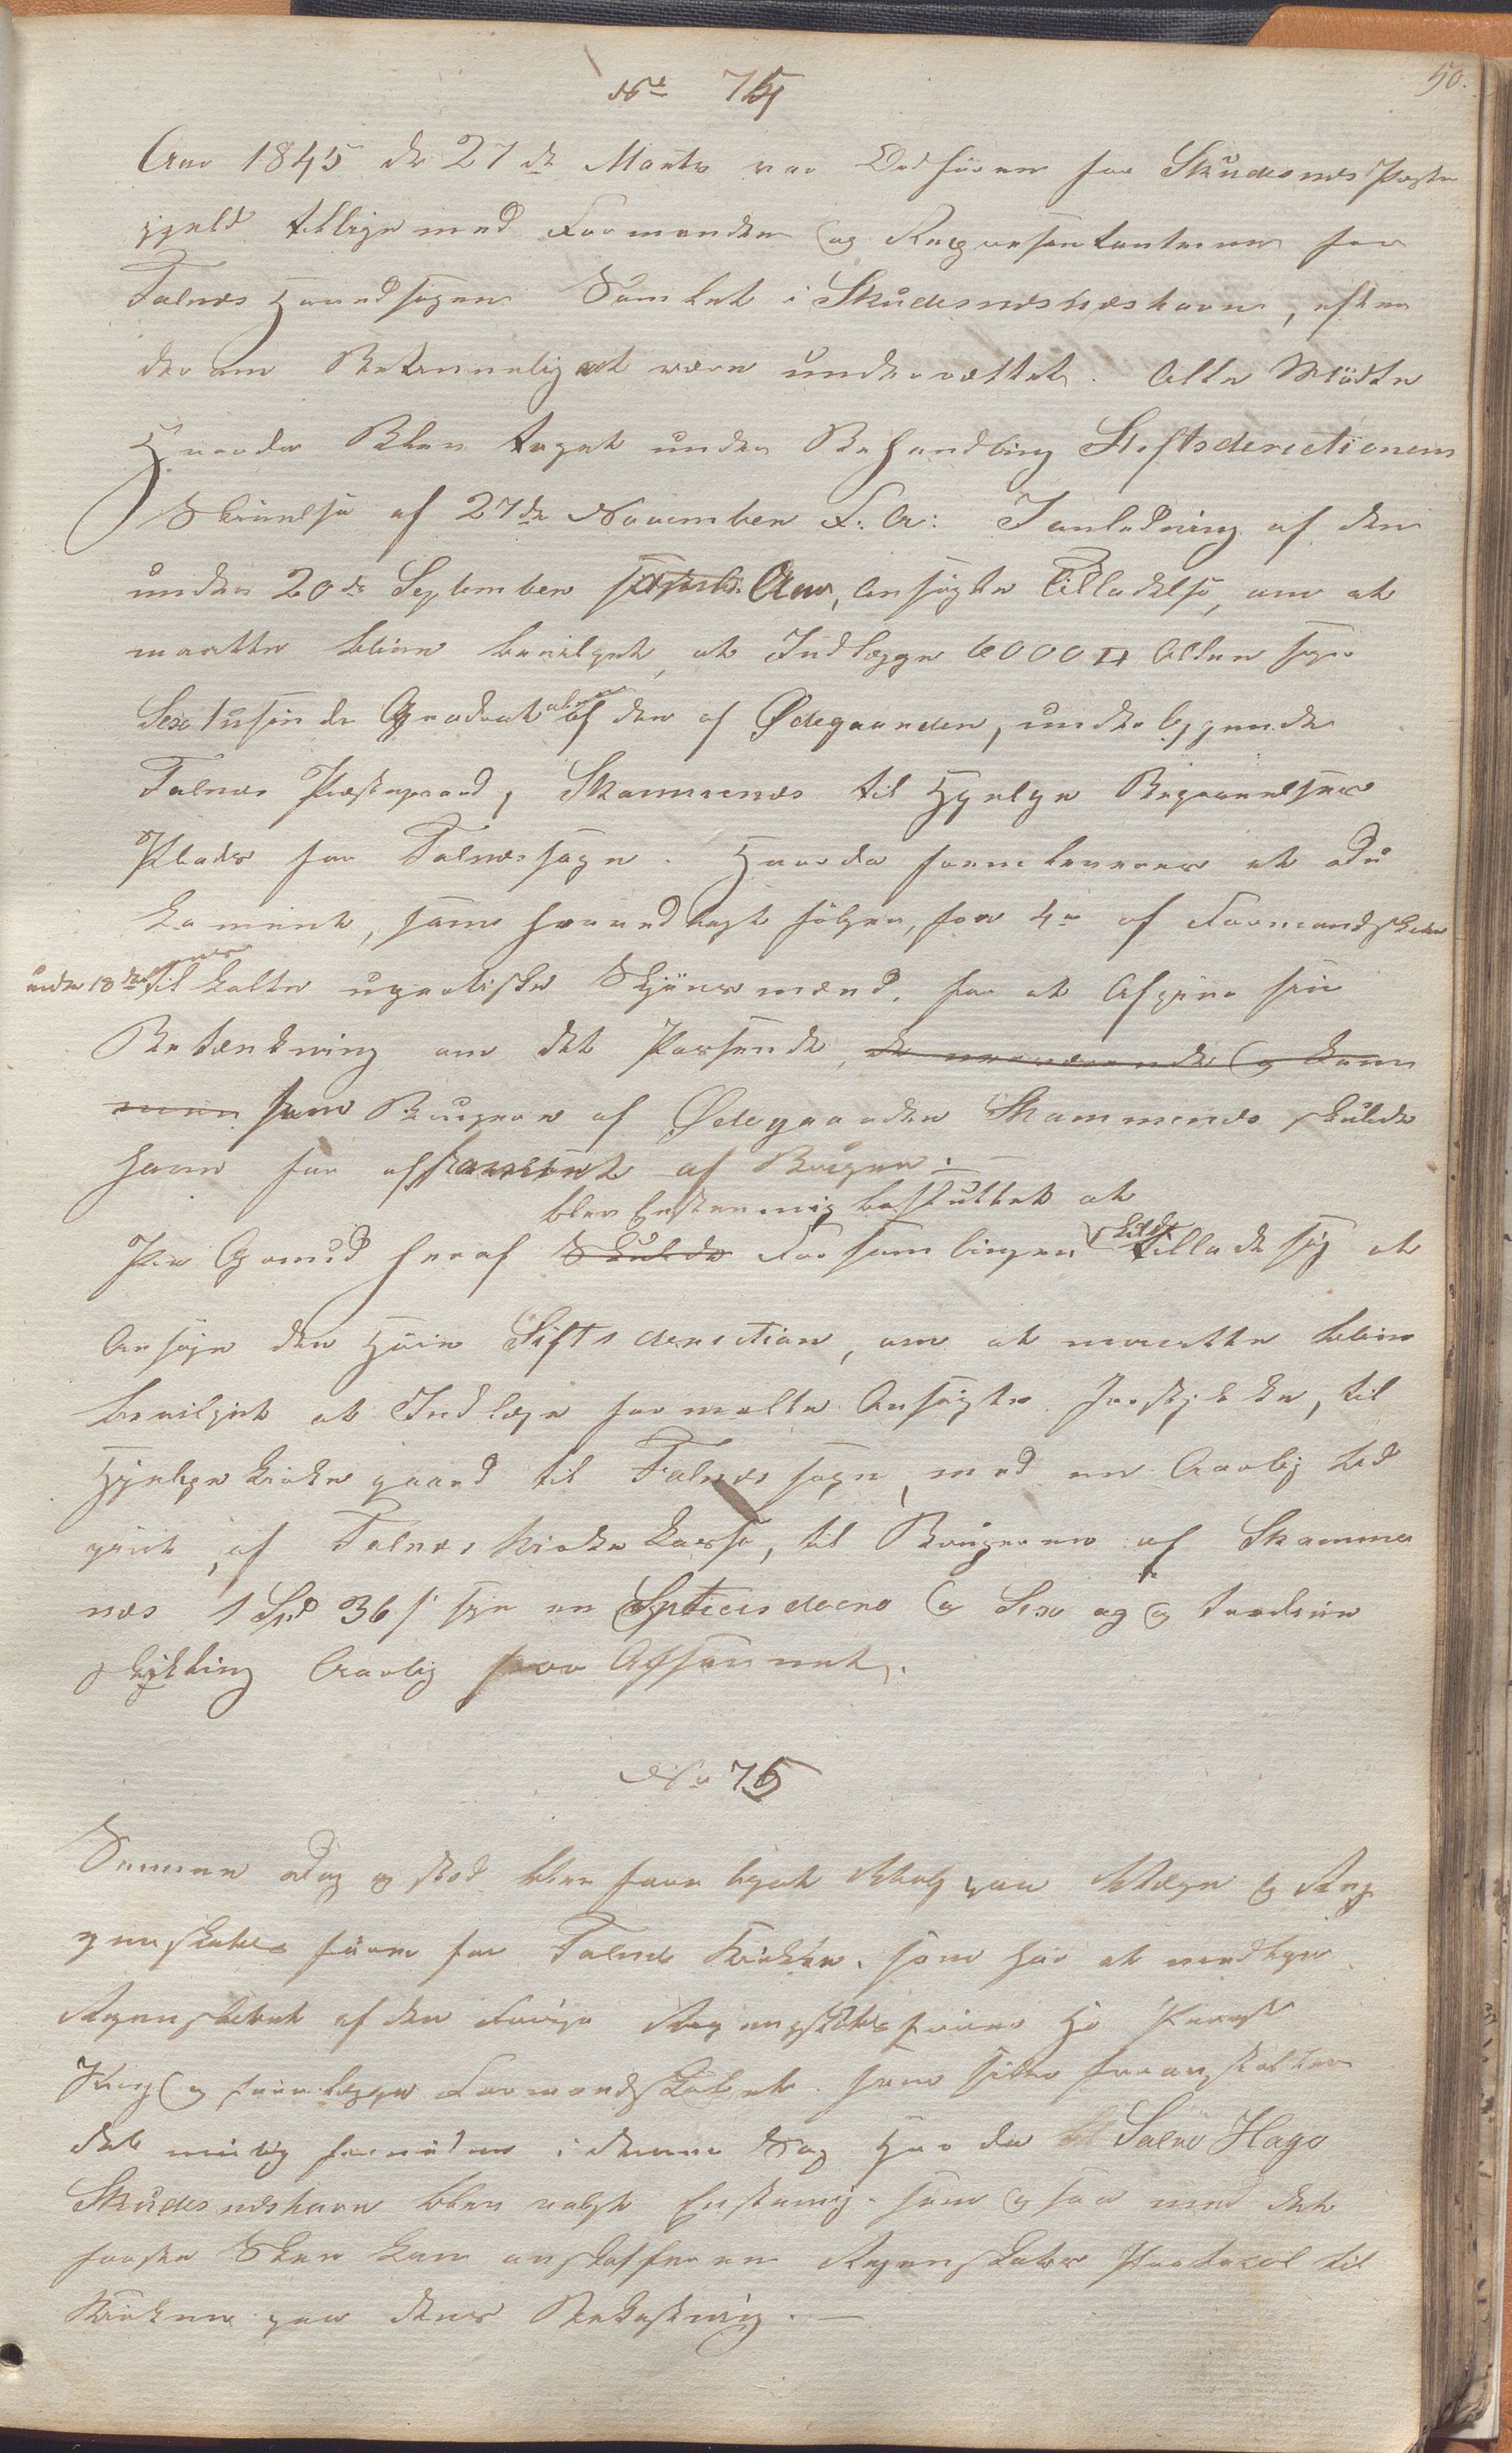 50.
No 74
Ano 1845 de 27de Marts var Ordføren for Skudesnes Præste
gjeld tilligemed Formænden og Repræsentanterne for
Falnes Hovedsogn Samlet i Skudesneshavn, efter
derom Betimmelig at være underrættet. Alle Mødte
Hvorda Blev taget under Behandling Stiftsderectionens
Skrivelse af 27de November F: A: I anledning af den
under 20de September Ano, ansøgte Tilladelse, om at
maatte blive bevilget, at Indlægge 6000 □ Allen siger
Sextusinde Qvadrat alen af den af Ødegaarden, underliggende
Falnes Præstegaard, Skamnenes til Hjelpe Begravelses
Plads for Falnes sogn. Hvorda fremleveres et Du
koment, som hermed lagt følger, for 4re af Formandskabet
under 18de til kalte upartiske Skjøns mænd, for at Afgive sin
Betænkning om det Passende,
som Brugeren af Ødegaarden Skammenes skulde
have for afstaaelse af Brugen. —
blev Enstemmig besluttet at
Paa Grund heraf Skulde Forsamlingen tillade sig at
Ansøge den Høie Stiftsderection, om at maatte blive
bevilget at Indlægge formelte Ansøgte Jorstykke, til
Hjelpe kirke gaard til Falnes sogn, med en Aarlig Ud
givt, af Falnes Kirke kasse, til Brugeren af Skamme
nes 1 Spd 36 s siger en Speciesdaler og Sex og tredive
skilling Aarlig for Afsavnet.
No 75
Samme Dag og sted blev foretaget Valg paa Værge og Reg
gnskabs fører for Falnes Kirke, som har at modtage
Regenskabet af den Forrige Regenskabsfører Hr Præst
og forelegge Formandskabet. som siden foranstalter
det videre fornødne i denne Sag Hvorda Salve Hage
Skudesneshavn blev valgt Enstemig. som ogsaa med det
første Skee kan anskaffer en Regenskabs Protocol til
Kirken paa dens Bekostning. —